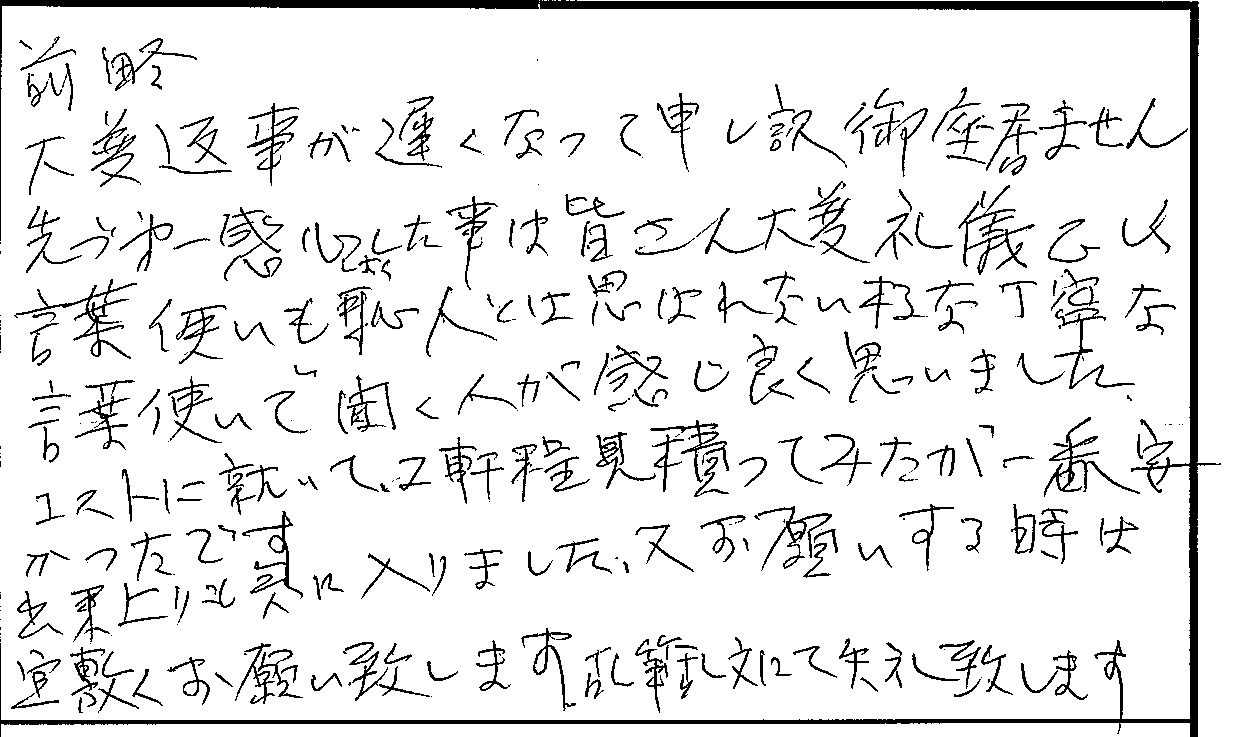 前略
大変返事が遅くなって申し訳御座居ません
先づ第一感心した事は皆さん大変礼儀正しく
言葉使いも職人とは思はれない様な丁寧な
言葉使いで聞く人が感じ良く思いました、
コストに就いては2軒程見積ってみたが一番安
かったです
出来上りも気に入りました、又お願いする時は
宜敷くお願い致します 乱筆乱文にて失礼致します